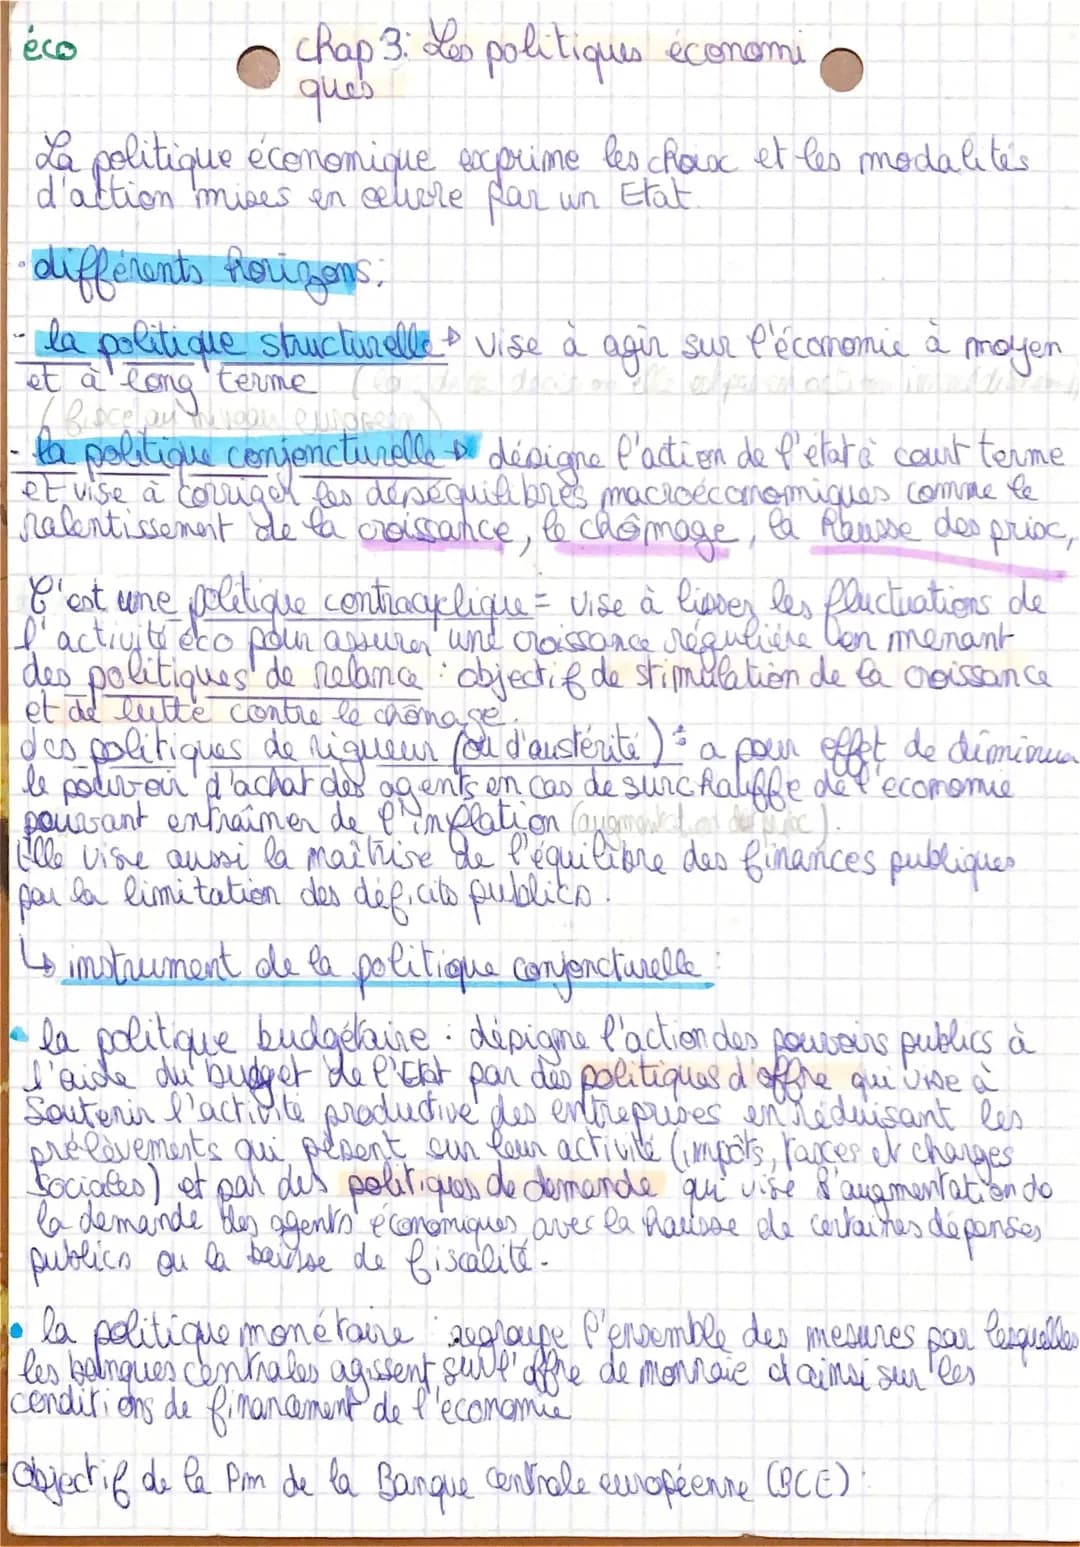 éco
chap 3: Les politiques économi
ques
La politique économique exprime les choix et les modalités
d'action mises en œuvre par un Etat.
· différents horizons:
- la politique structurelle → vise à agir sur l'économie à moyen
et à long terme
- la politique conjoncturelle → désigne l'action de l'état à court terme
et vise à corriger les déséquilibres macroéconomiques comme le
ralentissement de la croissance, le chômage, la hausse des prix,
C'est une politique contracyclique = vise à lisser les fluctuations de
l'activité éco pour assurer une croissance régulière en menant
des politiques de relance : objectif de stimulation de la croissance
et de lutte contre le chômage.
des politiques de rigueur (ou d'austérité) : a pour effet de diminuer
le pouvoir d'achat des agents en cas de surchauffe de l'économie
pouvant entraîner de l'inflation (augmentation des prix).
Elle vise aussi la maîtrise de l'équilibre des finances publiques
par la limitation des déficits publics.
↳ instrument de la politique conjoncturelle :
• la politique budgétaire : désigne l'action des pouvoirs publics à
l'aide du budget de l'Etat par des politiques d'offre qui vise à
soutenir l'activité productive des entreprises en réduisant les
prélèvements qui pèsent sur leur activité (impôts, taxes et charges
sociales) et par des politiques de demande qui vise l'augmentation de
la demande des agents économiques avec la hausse de certaines dépenses
publics ou la baisse de fiscalité.
• la politique monétaire : regroupe l'ensemble des mesures par lesquelles
les banques centrales agissent sur l'offre de monnaie et ainsi sur les
conditions de financement de l'économie
Objectif de la Pm de la Banque centrale européenne (BCE) :